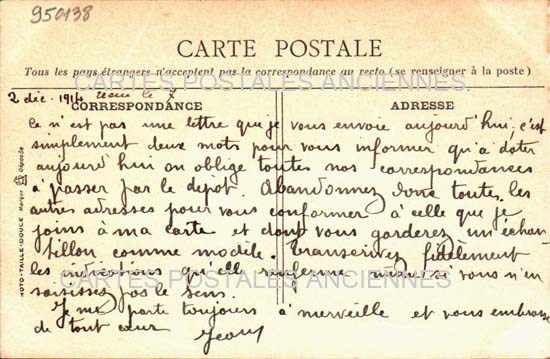 950138
CARTE POSTALE
Tous les pays étrangers n'acceptent pas la correspondance au recto (se renseigner à la poste)
2 déc. 1914 le 7
CORRESPONDANCE
ADRESSE
Ce n'est pas une lettre que je vous envoie aujourd'hui, c'est
simplement deux mots pour vous informer qu'à dater
d'aujourd'hui on oblige toutes nos correspondances
à passer par le dépôt. Abandonnez donc toutes les
autres adresses pour vous conformer à celle que je
joins à ma carte et dont vous garderez un échan
tillon comme modèle. Transcrivez fidèlement
les indications qu'elle renferme même si vous n'en
saisissez pas le sens.
Je me porte toujours à merveille et vous embrasse
de tout cœur Jean
CARTES POSTALES ANCIENNES
CARTES POSTALES ANCIENNES
PHOTO-TAILLE-DOUCE Marque Déposée